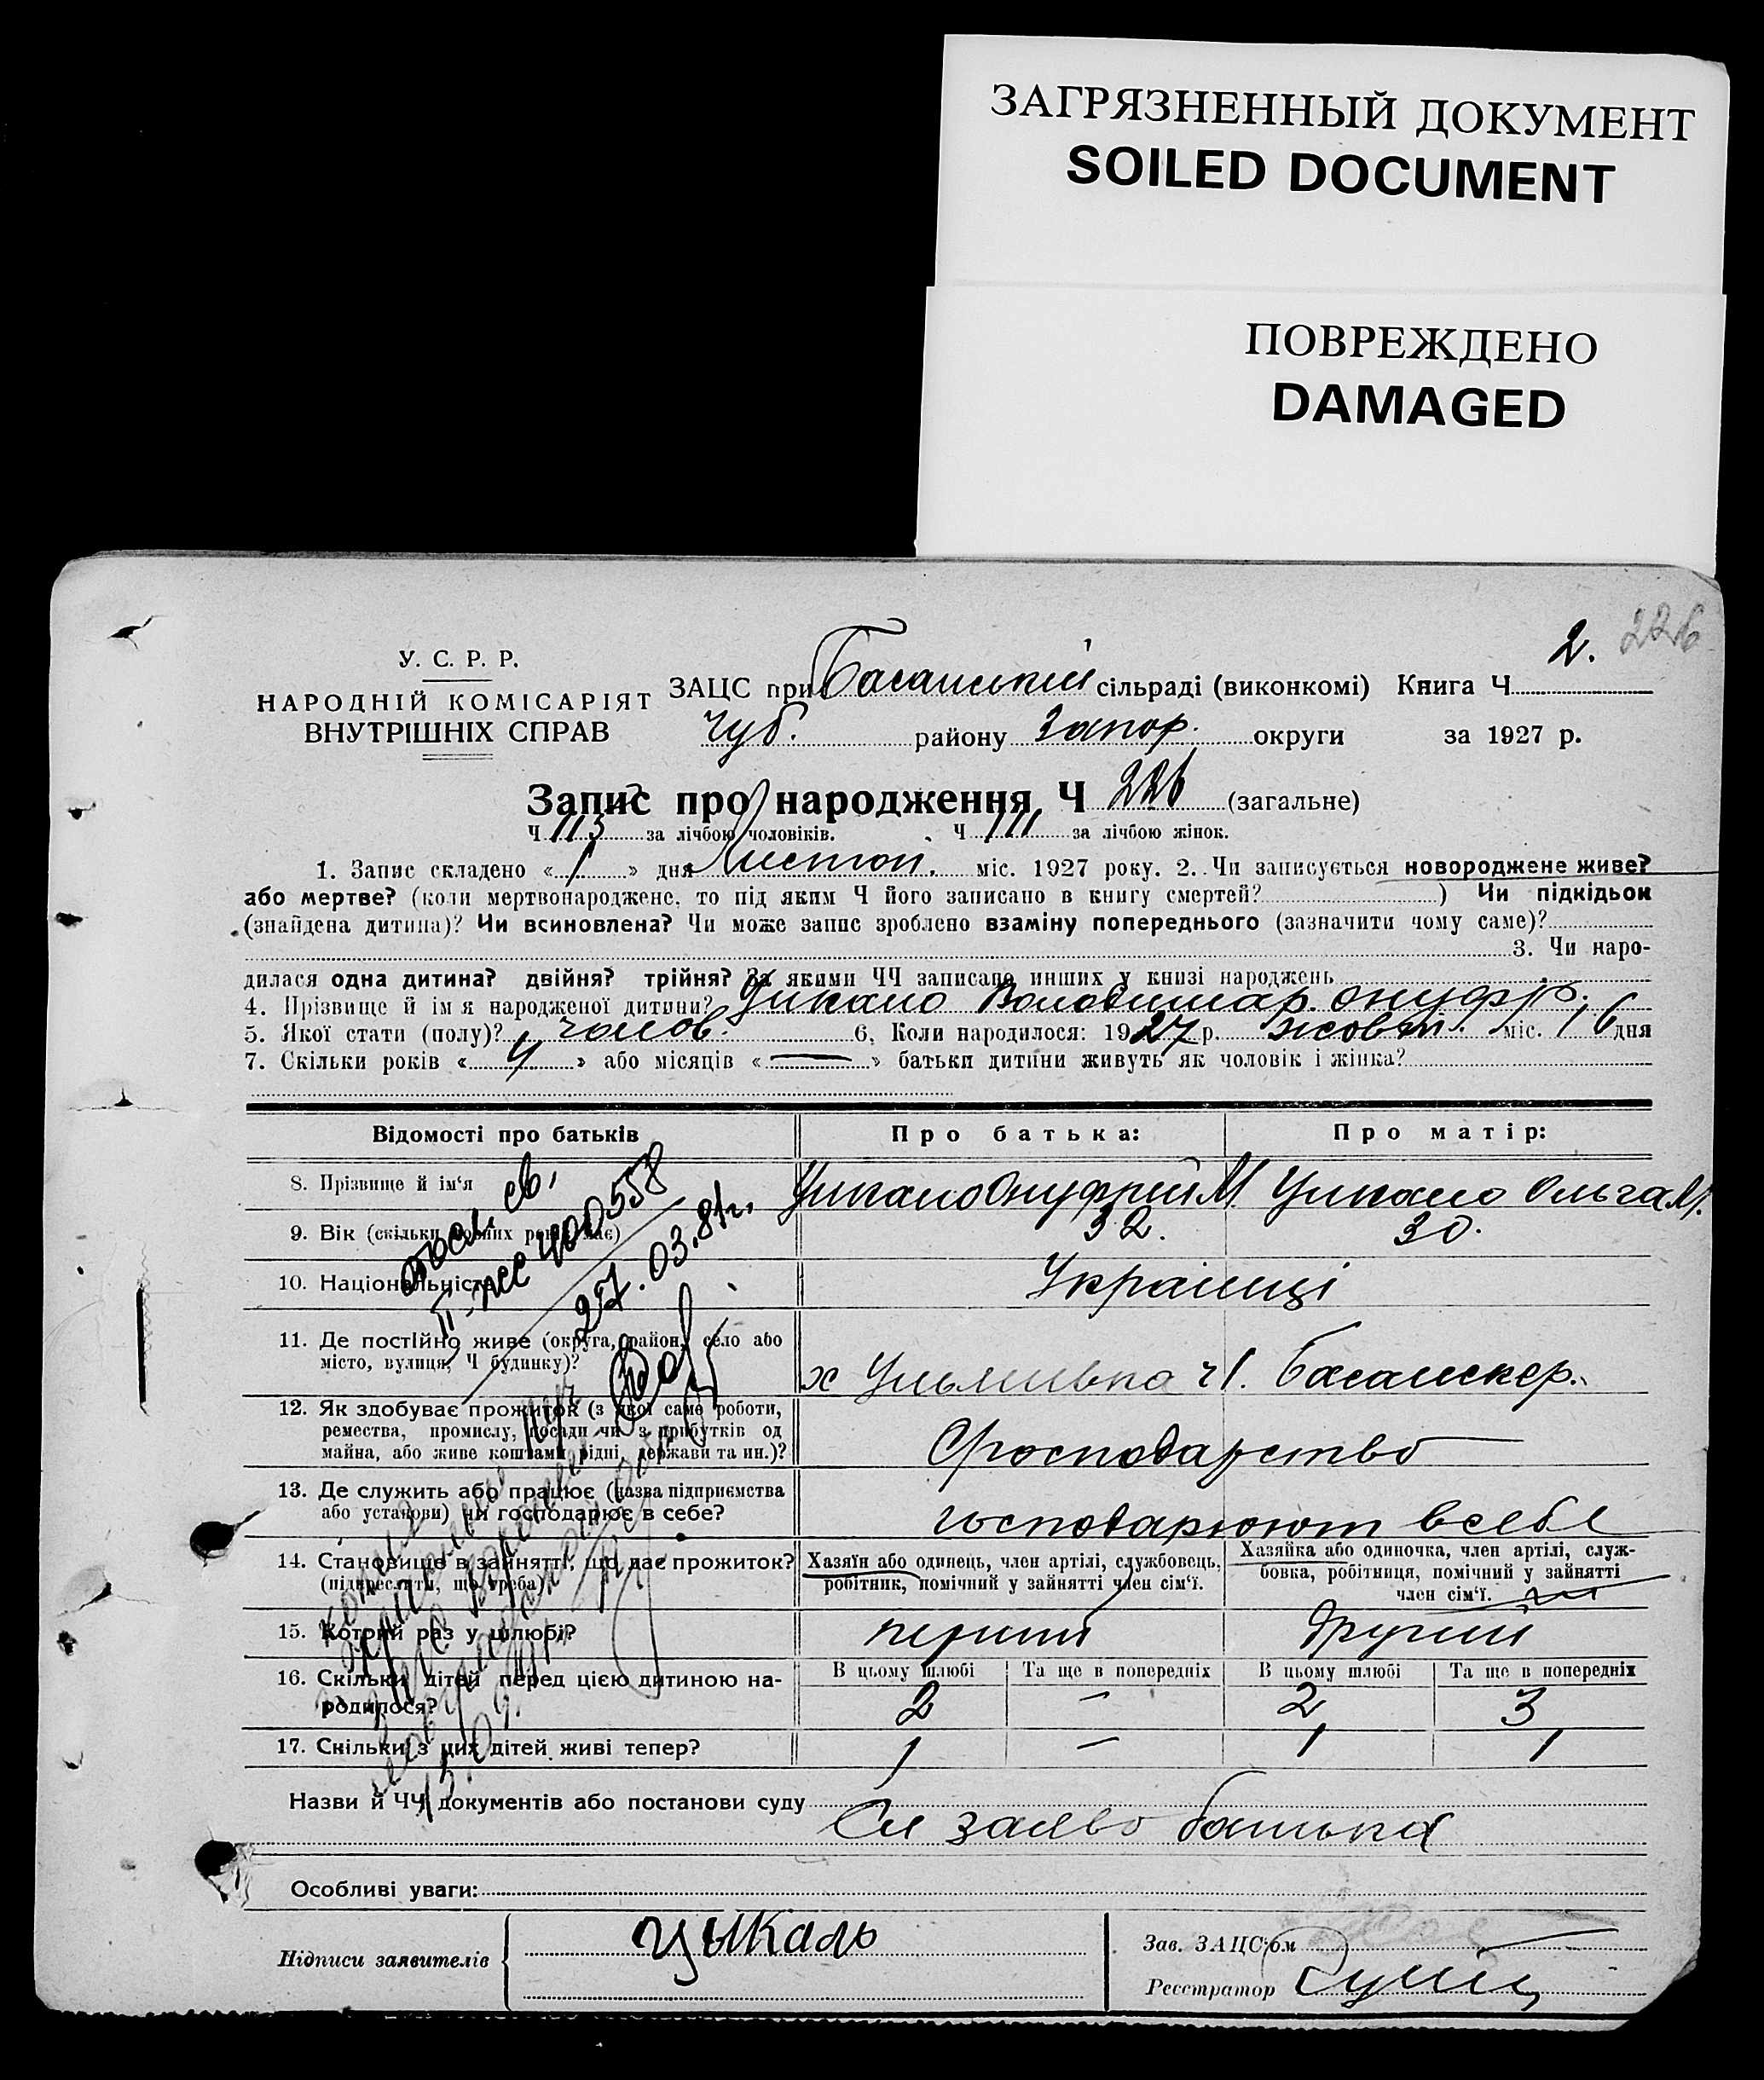 ЗАГРЯЗНЕННЫЙ ДОКУМЕНТ
SOILED DOCUMENT
ПОВРЕЖДЕНО
DAMAGED
2. 226
У. С. Р. Р.
НАРОДНІЙ КОМІСАРІЯТ
ВНУТРІШНІХ СПРАВ
ЗАЦС при Басанській сільраді (виконкомі) Книга Ч
Чуб. району Запор. округи за 1927 р.
Запис про народження Ч 226 (загальне)
Ч 113 за лічбою чоловіків. Ч 111 за лічбою жінок.
1. Запис складено « 1 » дня Листоп. міс. 1927 року. 2. Чи записується новороджене живе?
або мертве? (коли мертвонароджене, то під яким Ч його записано в книгу смертей? ) Чи підкідьок
(знайдена дитина)? Чи всиновлена? Чи може запис зроблено взаміну попереднього (зазначити чому саме)?
3. Чи наро-
дилася одна дитина? двійня? трійня? За якими ЧЧ записано инших у книзі народжень
4. Прізвище й ім я народженої дитини? Цикало Володимир. Онуфр.
5. Якої стати (полу)? чолов. 6. Коли народилося: 1927 р. жовт. міс. 16 дня
7. Скільки років « 4 » або місяців « — » батьки дитини живуть як чоловік і жінка?
Відомості про батьків
Про батька:
Про матір:
8. Прізвище й ім‘я
Цикало Онуфрий М. Цикало Ольга М.
9. Вік (скільки повних років має)
32. 30.
10. Національність
Українці
11. Де постійно живе (округа, район, село або
місто, вулиця, Ч будинку)?
х Ульянівка ч1.
12. Як здобуває прожиток (з якої саме роботи,
ремества, промислу, посади чи з прибутків од
майна, або живе коштами рідні, держави та ин.)?
13. Де служить або працює (назва підприємства
або установи) чи господарює в себе?
господарюют всебе
14. Становище в зайнятті, що дає прожиток?
(підкреслити, що треба)
Хазяїн або одинець, член артілі, службовець,
робітник, помічний у зайнятті член сім‘ї.
Хазяйка або одиночка, член артілі, служ-
бовка, робітниця, помічний у зайнятті
член сім‘ї.
15. Котрий раз у шлюбі?
перший другий
16. Скільки дітей перед цією дитиною на-
родилося?
В цьому шлюбі Та ще в попередніх В цьому шлюбі Та ще в попередніх
2 – 2 3
17. Скільки з цих дітей живі тепер?
1 – 1 1
Назви й ЧЧ документів або постанови суду
батька
Особливі уваги:
Підписи заявителів
Цыкало
Зав. ЗАЦС‘ом
Реєстратор
400558
27.03.81г.